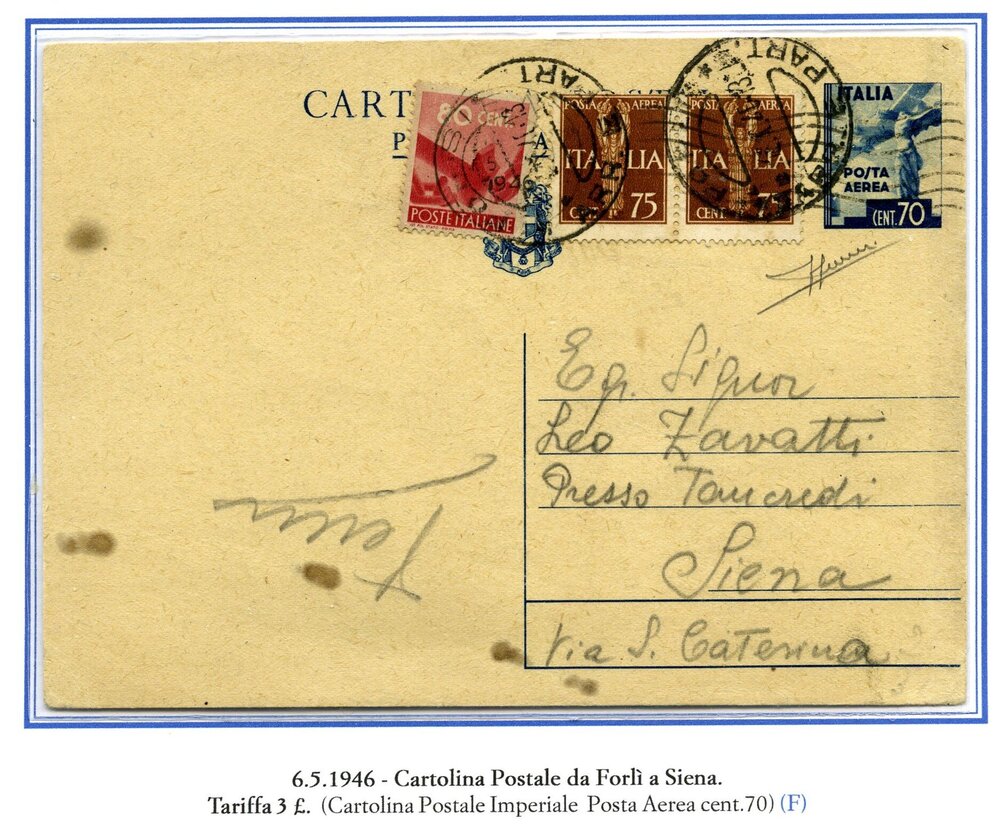 CART
P A
80 CENT
1946
POSTE ITALIANE
POSTA AEREA
ITALIA
CENT 75
POSTA AEREA
ITALIA
CENT 75
PART.
ITALIA
POSTA
AEREA
CENT. 70
Eg. Signor
Leo Zavatti
Presso Tancredi
Siena
Via S. Caterina
6.5.1946 - Cartolina Postale da Forlì a Siena.
Tariffa 3 £. (Cartolina Postale Imperiale Posta Aerea cent.70) (F)